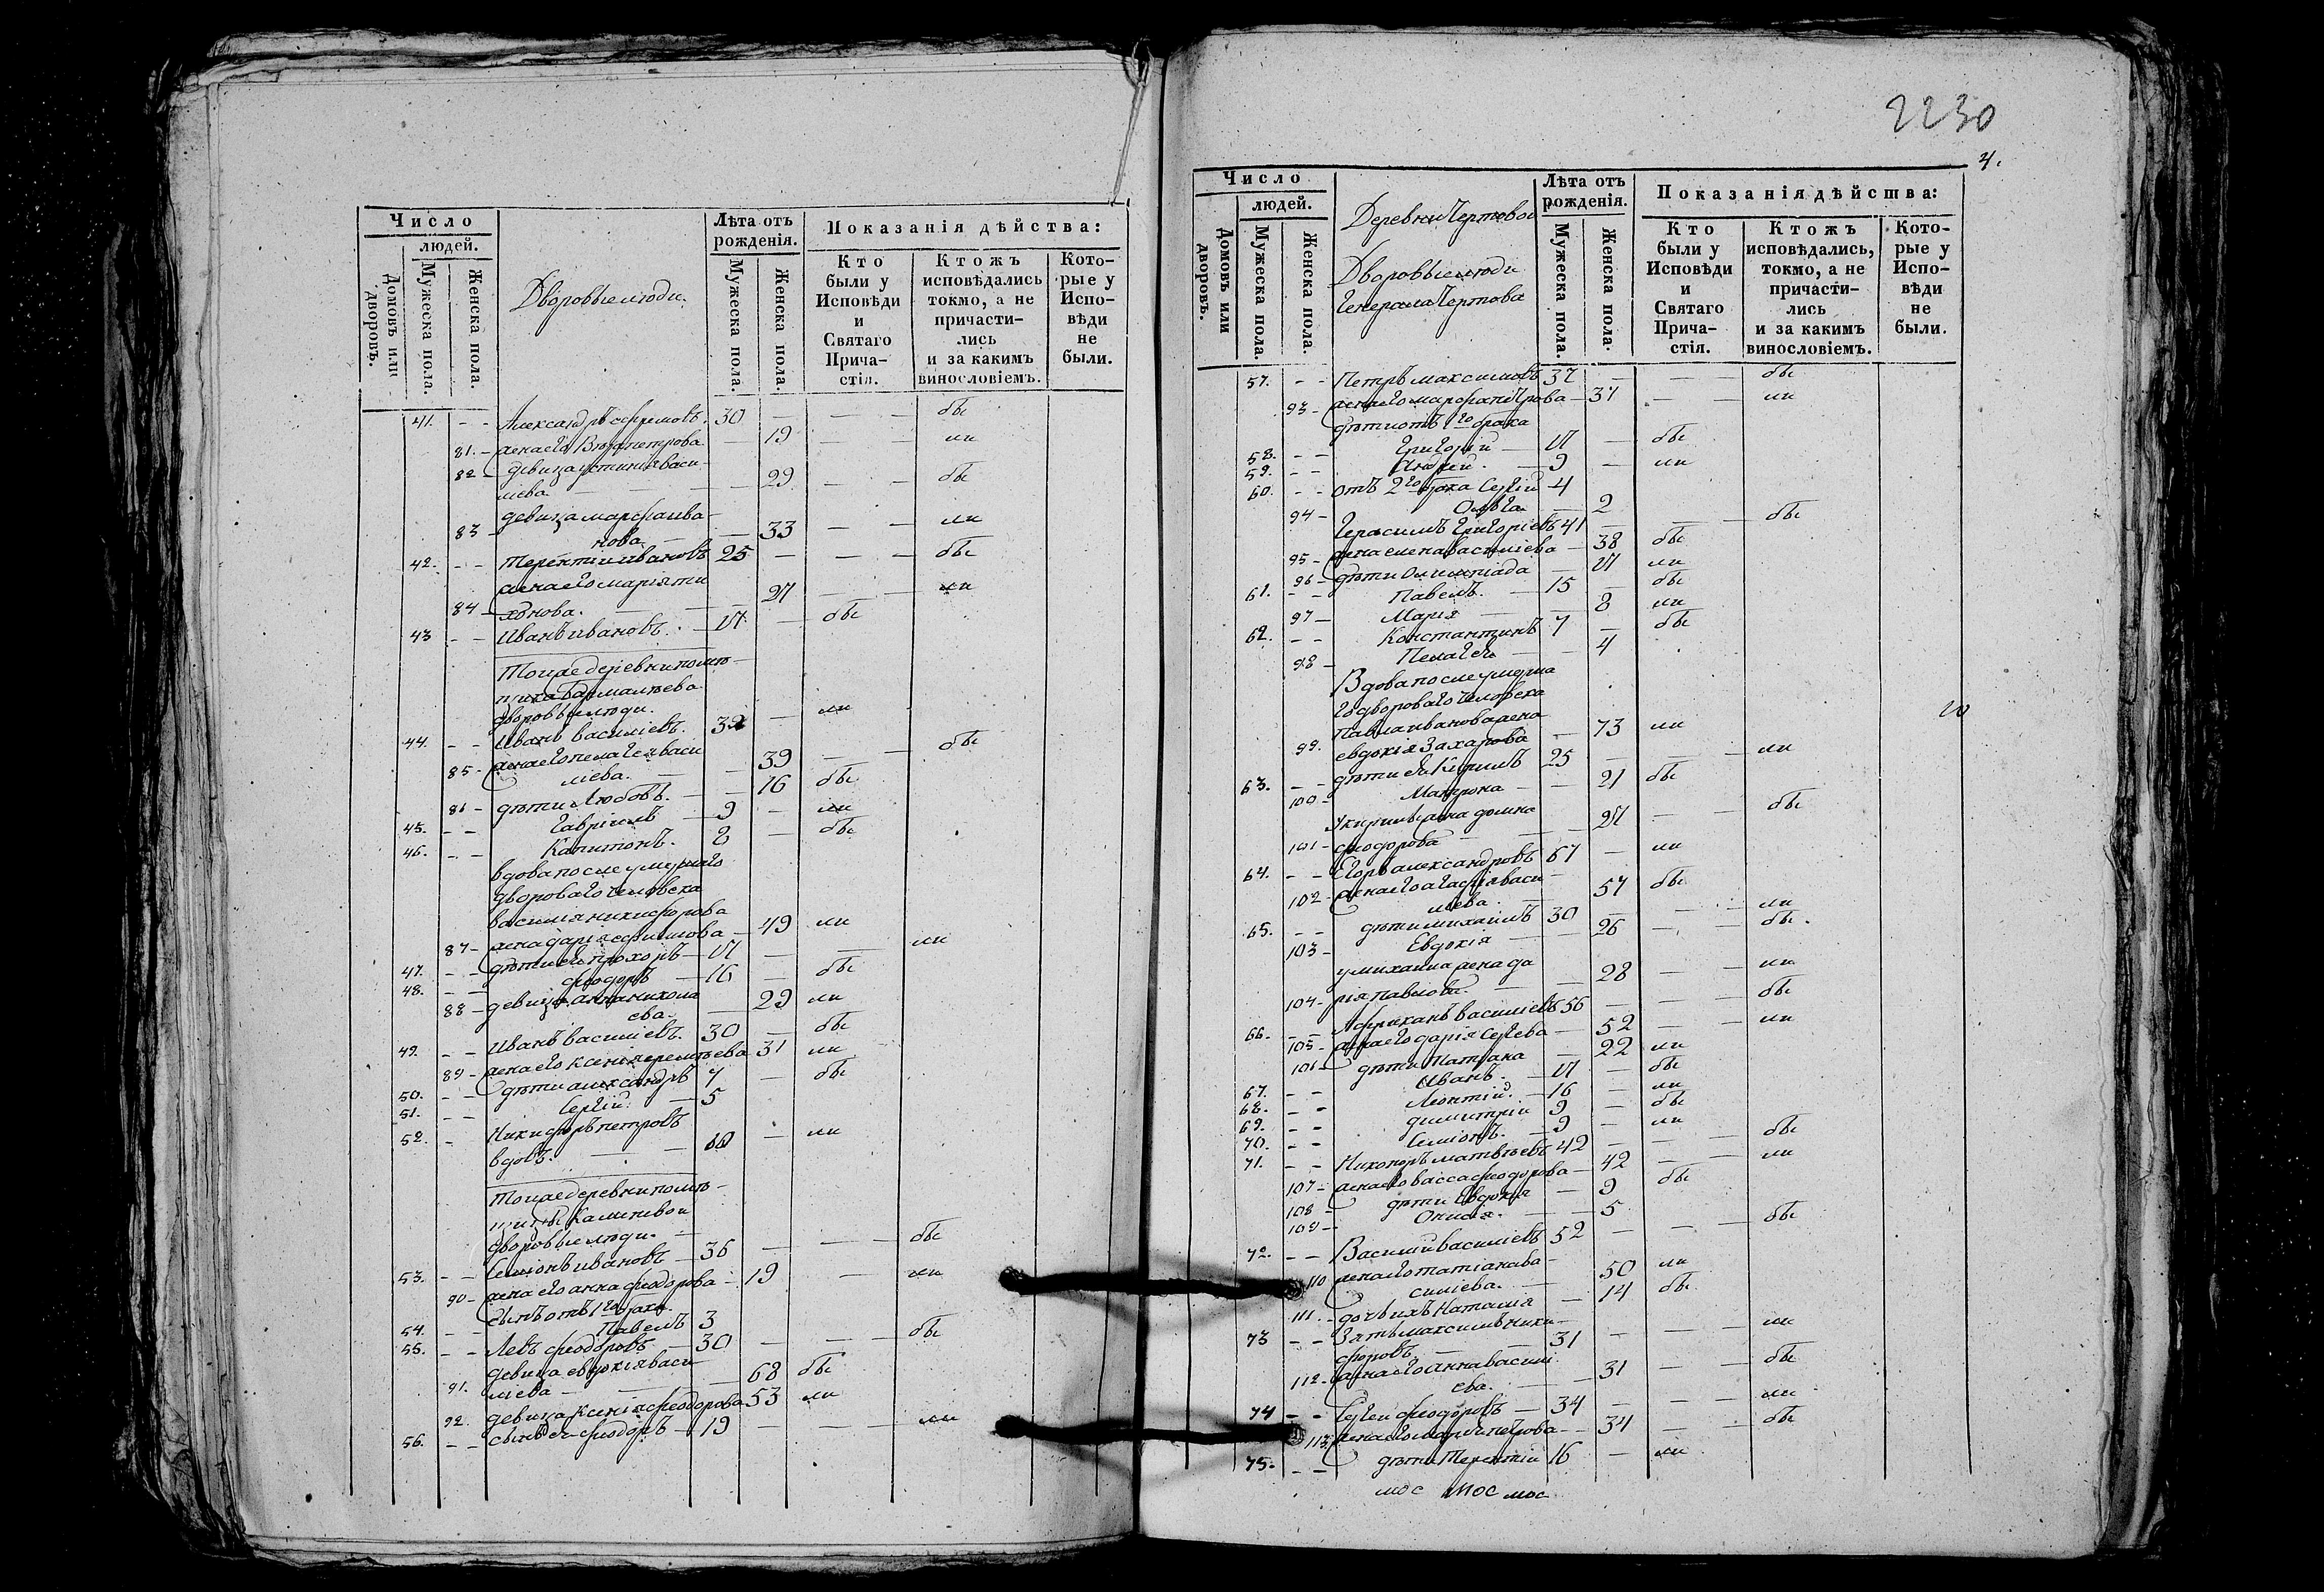 Число
людей.
Домовъ или дворовъ.
Мужеска пола.
Женска пола.
Дворовые люди.
Лѣта отъ рожденія.
Мужеска пола.
Женска пола.
Показанія дѣйства:
Кто были у Исповѣди и Святаго Причастія.
Ктожъ исповѣдались токмо, а не причастились и за какимъ винословіемъ.
Которые у Исповѣди не были.
41. - - Александръ ефремовъ. 30 — — — бы
81. - жена его Вѣра петрова — 19 — — ли
82 - девица устинія васи-
лiева — — 29 — — бы
83 - девица марфа ива-
нова — — 33 — — ли
42. - - терентiй ивановъ 25 — — — бы
жена его марiя ти
84 - хонова. — — 27 — — ли
43 - - Иванъ ивановъ. — 17 — бы
Тоиже деревни помѣ-
щика
дворовые люди.
44. - - Иванъ василіевъ. 39 — ли
85 - жена его пелагея васи
лiева. — — 39 — — бы
86 - дѣти Любовь. — — 16 бы
45. - - Гаврiилъ — 9 — ли
46. - - Капитонъ. 8 — бы
вдова после умершаго
двороваго человека
василiя никифорова
87 - жена дарiя — 49 ли
47. - - дѣти ея прохоръ — 17 — — ли
48. - - феодоръ — 16 — бы
88 - девица анна никола
ева. — 29 ли
49. - - Иванъ василіевъ. 30 — бы
89 - жена его ксенiя еремѣева 31 ли
50. - - дѣти александръ 7 — бы
51. - - Сергiй. — 5
52. - Никифоръ петровъ
вдовъ. — — 60 — ли
Тоиже деревни помѣ-
щицы
дворовые люди. —
53. - - Семiонъ ивановъ — 36 — — — бы
90 - жена его анна феодорова — 19 — ли
сынъ отъ 1го брака
54. - - Павелъ 3
55. - - Левъ феодоровъ — 30 — — — бы
девица евдокiя васи-
91. лiева — — 68 бы
92. девица Ксенiя феодорова 53 ли
56. - - сынъ ея феодоръ — 19 — — — ли
2230
4.
Число
людей.
Домовъ или дворовъ.
Мужеска пола.
Женска пола.
Деревни Чертовой
Дворовые люди
Генерала Чертова
Лѣта отъ рожденія.
Мужеска пола.
Женска пола.
Показанія дѣйства:
Кто были у Исповѣди и Святаго Причастія.
Ктожъ исповѣдались, токмо, а не причастились и за какимъ винословіемъ.
Которые у Исповѣди не были.
57. - - Петръ максимовъ 37 — — бы
93 - жена его марфа петрова — 37 — — ли
дѣти отъ 1го брака
58. - - Григорiй — 17 — бы
59. - - Андрей. — 9 — ли
60. - - отъ 2го брака Сергiй — 4
94 - Ольга — 2
Герасимъ Григорiевъ 41 — — — бы
95 - жена елена василiева — 38 бы
96 - дѣти Олимпiада — 17 ли
61. - - Павелъ. — 15 — бы
97 - Марiя — — 8 ли
62. - - Константинъ 7 — бы
98 - Пелагея — — 4
Вдова после умерша
го двороваго человека
Павла иванова жена
99. евдокiя Захарова — 73 ли
63. - - дѣти ея Кирилъ 25 — — — ли
100 - Матрона — — 21 бы
У кирилы жена домна
101 - феодорова — — 27 — — бы
64. - - Егоръ александровъ 67 — ли
102 - жена его агафiя васи-
лiева. — 57 бы
65. - - дѣти михаилъ 30 — — — ли
103 - Евдокiя — — 26 — — бы.
у михаила жена да
104 - рiя павлова. — — 28 — — ли
66. - - Африканъ василiевъ 56 — — — бы
105 - жена его дарiя Сергева — 52 — — ли
106 - дѣти Татiана — 22 ли
67. - - Иванъ. — 17 — бы
68. - - Леонтiй. — 16 — ли
69. - - димитрiй 9 — бы
70. - - Семiонъ. — 9 — ли
71. - - Никоноръ матвѣевъ 42 — — — бы
107 - жена его васса феодорова — 42 — — ли
108 - дѣти Евдокiя — 9 бы
109 - Онисiя. — — 5
72. - - Василiй василiевъ 52 — — — бы
110 жена его татiана ва-
силiева. — 50 ли
111. - дочь ихъ Наталiя — 14 бы
73 - - Зять максимъ ники-
форовъ. — — 31 — — — ли
112 - жена его анна васили
ева. — — 31 — — бы
74 - - Сергей феодоровъ — 34 — — — ли
113. жена его марiя петрова — 34 — — бы
75. - - дѣти Терентiй 16 — ли